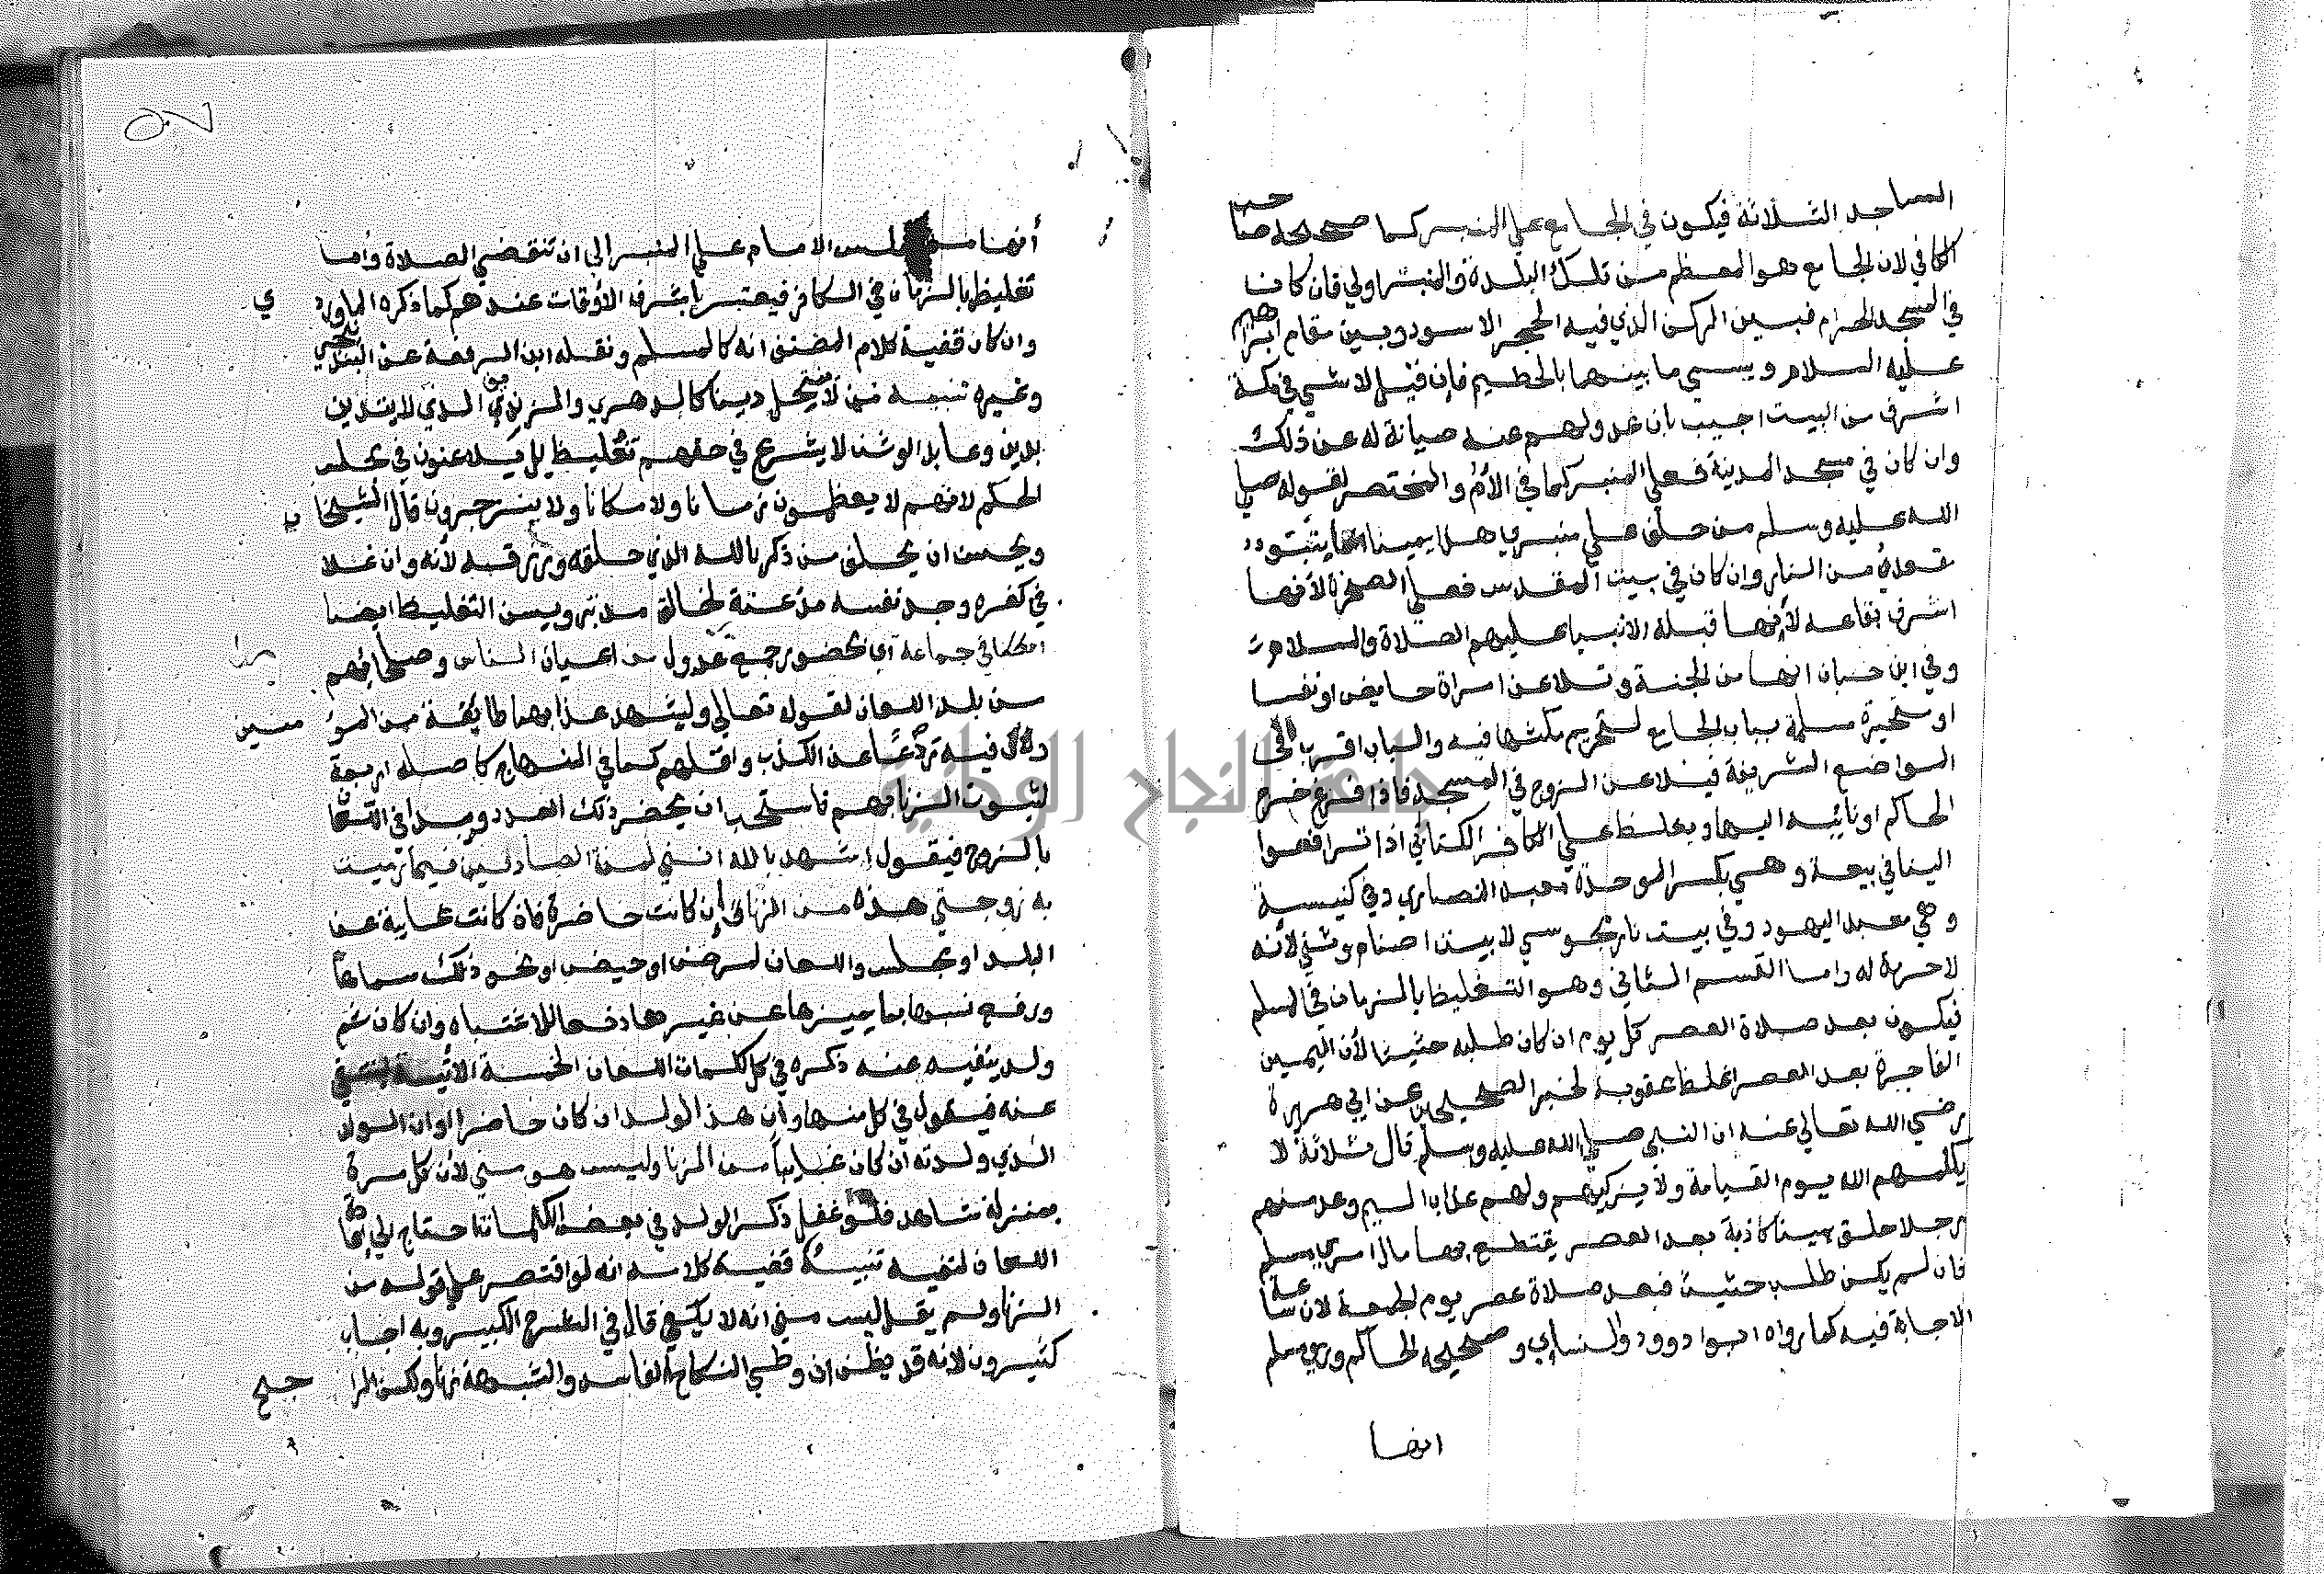 المساجد الثلاثة فيكون في الجامع علي المنبر كما صححه صاحب
الكافي لان الجامع هو المعظم من تلك البلدة والمنبر اولي فان كانا
في المسجد الحرام فبين الركن الذي فيه الحجر الاسود وبين مقام ابراهيم
عليه السلام ويسمي ما بينهما بالحطيم فان قيل لا شي في مكة
اشرف من البيت اجيب بان عدولهم عنه صيانة له عن ذلك
وان كان في مسجد المدينة فعلي المنبر كما في الأم والمختصر لقوله صلي
الله عليه وسلم من حلف علي منبري هذا يمينا اثما يتبوء
مقعده من النار وان كان في بيت المقدس فعلي الصخرة لأنها
اشرف بقاعه لأنها قبلة الانبيا عليهم الصلاة والسلام
وفي ابن حبان انها من الجنة وتلاعن امراة حايض او نفسا
او متحيرة مسلمة بباب الجامع لتحريم مكثها فيه والباب اقرب الي
المواضع الشريفة فيلاعن الزوج في المسجد فاذا فرغ خرج
الحاكم او نائبه اليها ويغلظ علي الكافر الكتابي اذا ترافعوا
الينا في بيعة وهي بكسر الموحدة معبد النصاري وفي كنيسة
وهي معبد اليهود وفي بيت نار مجوسي لا بيت اصنام وثني لأنه
لا حرمة له واما القسم الثاني وهو التغليظ بالزمان في المسلم
فيكون بعد صلاة العصر كل يوم ان كان طلبه حثيثا لأن اليمين
الفاجرة بعد العصر اغلظ عقوبة لخبر الصحيحين عن ابي هريرة
رضي الله تعالي عنه ان النبي صلي الله عليه وسلم قال ثلاثة لا
يكلمهم الله يوم القيامة ولا يزكيهم ولهم عذاب اليم وعد منهم
رجلا حلف يمينا كاذبة بعد العصر يقتطع بها مال امري مسلم
فان لم يكن طلب حثيث فبعد صلاة عصر يوم الجمعة لان ساعة
الاجابة فيه كما رواه ابوا داوود والنساي وصححه الحاكم وروي مسلم
انها
٥٧
أنها من مجلس الامام علي المنبر الي ان تنقضي الصلاة وأما
تغليظ بالزمان في الكافر فيعتبر بأشرف الأوقات عندهم كما ذكره الماوردي
وان كان قضية كلام المصنف انه كالمسلم ونقله ابن الرفعة عن البندنيجي
وغيره تنبيه من لا ينتحل دينا كالدهري والزنديق الذي لا يتدين
بدين وعابد الوثن لا يشرع في حقهم تغليظ بل يلاعنون في مجلس
الحكم لانهم لا يعظمون زمانا ولا مكانا ولا ينزجرون قال الشيخان
ويحسن ان يحلف من ذكر بالله الذي خلقه ورزقه لأنه وان غلا
في كفره وجد نفسه مذعنة لخالق مدبر ويسن التغليظ ايضا
في جماعة أي بحضور جمع عدول من اعيان الناس وصلحائهم
من بلد اللعان لقوله تعالي وليشهد عذابهما طائفة من المؤمنين
ولأن فيه ردعا عن الكذب واقلهم كما في المنهاج كاصله اربعة
لثبوت الزنا بهم فاستحب ان يحضر ذلك العدد ويبدا في اللعان
بالزوج فيقول اشهد بالله انني لمن الصادقين فيما رميت
به زوجتي هذه من الزنا إن كانت حاضرة فان كانت غايبة عن
البلد او مجلس واللعان لمرض او حيض او نحو ذلك سماها
ورفع نسبها بما يميزها عن غيرها دفعا للاشتباه وان كان ثم
ولد ينفيه عنه ذكره في كل كلمات اللعان الخمسة الاتية لينتفي
عنه فيقول في كل منها وأن هذا الولد ان كان حاضرا او ان الولد
الذي ولدته ان كان غايبا من الزنا وليس هو مني لأن كل مرة
بمنزلة شاهد فلو غفل ذكر الولد في بعض الكلمات احتاج الي
اللعان لنفيه تنبيه قضية كلامه انه لو اقتصر علي قوله من
الزنا ولم يقل ليس مني انه لا يكفي قال في الشرح الكبير وبه اجاب
كثيرون لانه قد يظن ان وطي النكاح الفاسد والشبهة زنا ولكن الراجح
جامعة النجاح الوطنية